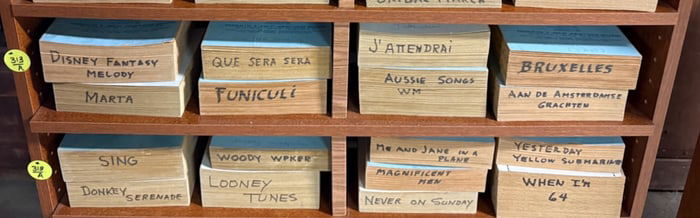 313
A
DISNEY FANTASY
MELODY
MARTA
QUE SERA SERA
FUNICULI
J'ATTENDRAI
AUSSIE SONGS
WM
BRUXELLES
AAN DE AMSTERDAMSE
GRACHTEN
318
A
SING
DONKEY SERENADE
WOODY WPKER
LOONEY
TUNES
ME AND JANE IN A
PLANE
MAGNIFICENT
MEN
NEVER ON SUNDAY
YESTERDAY
YELLOW SUBMARINE
WHEN I'M
64